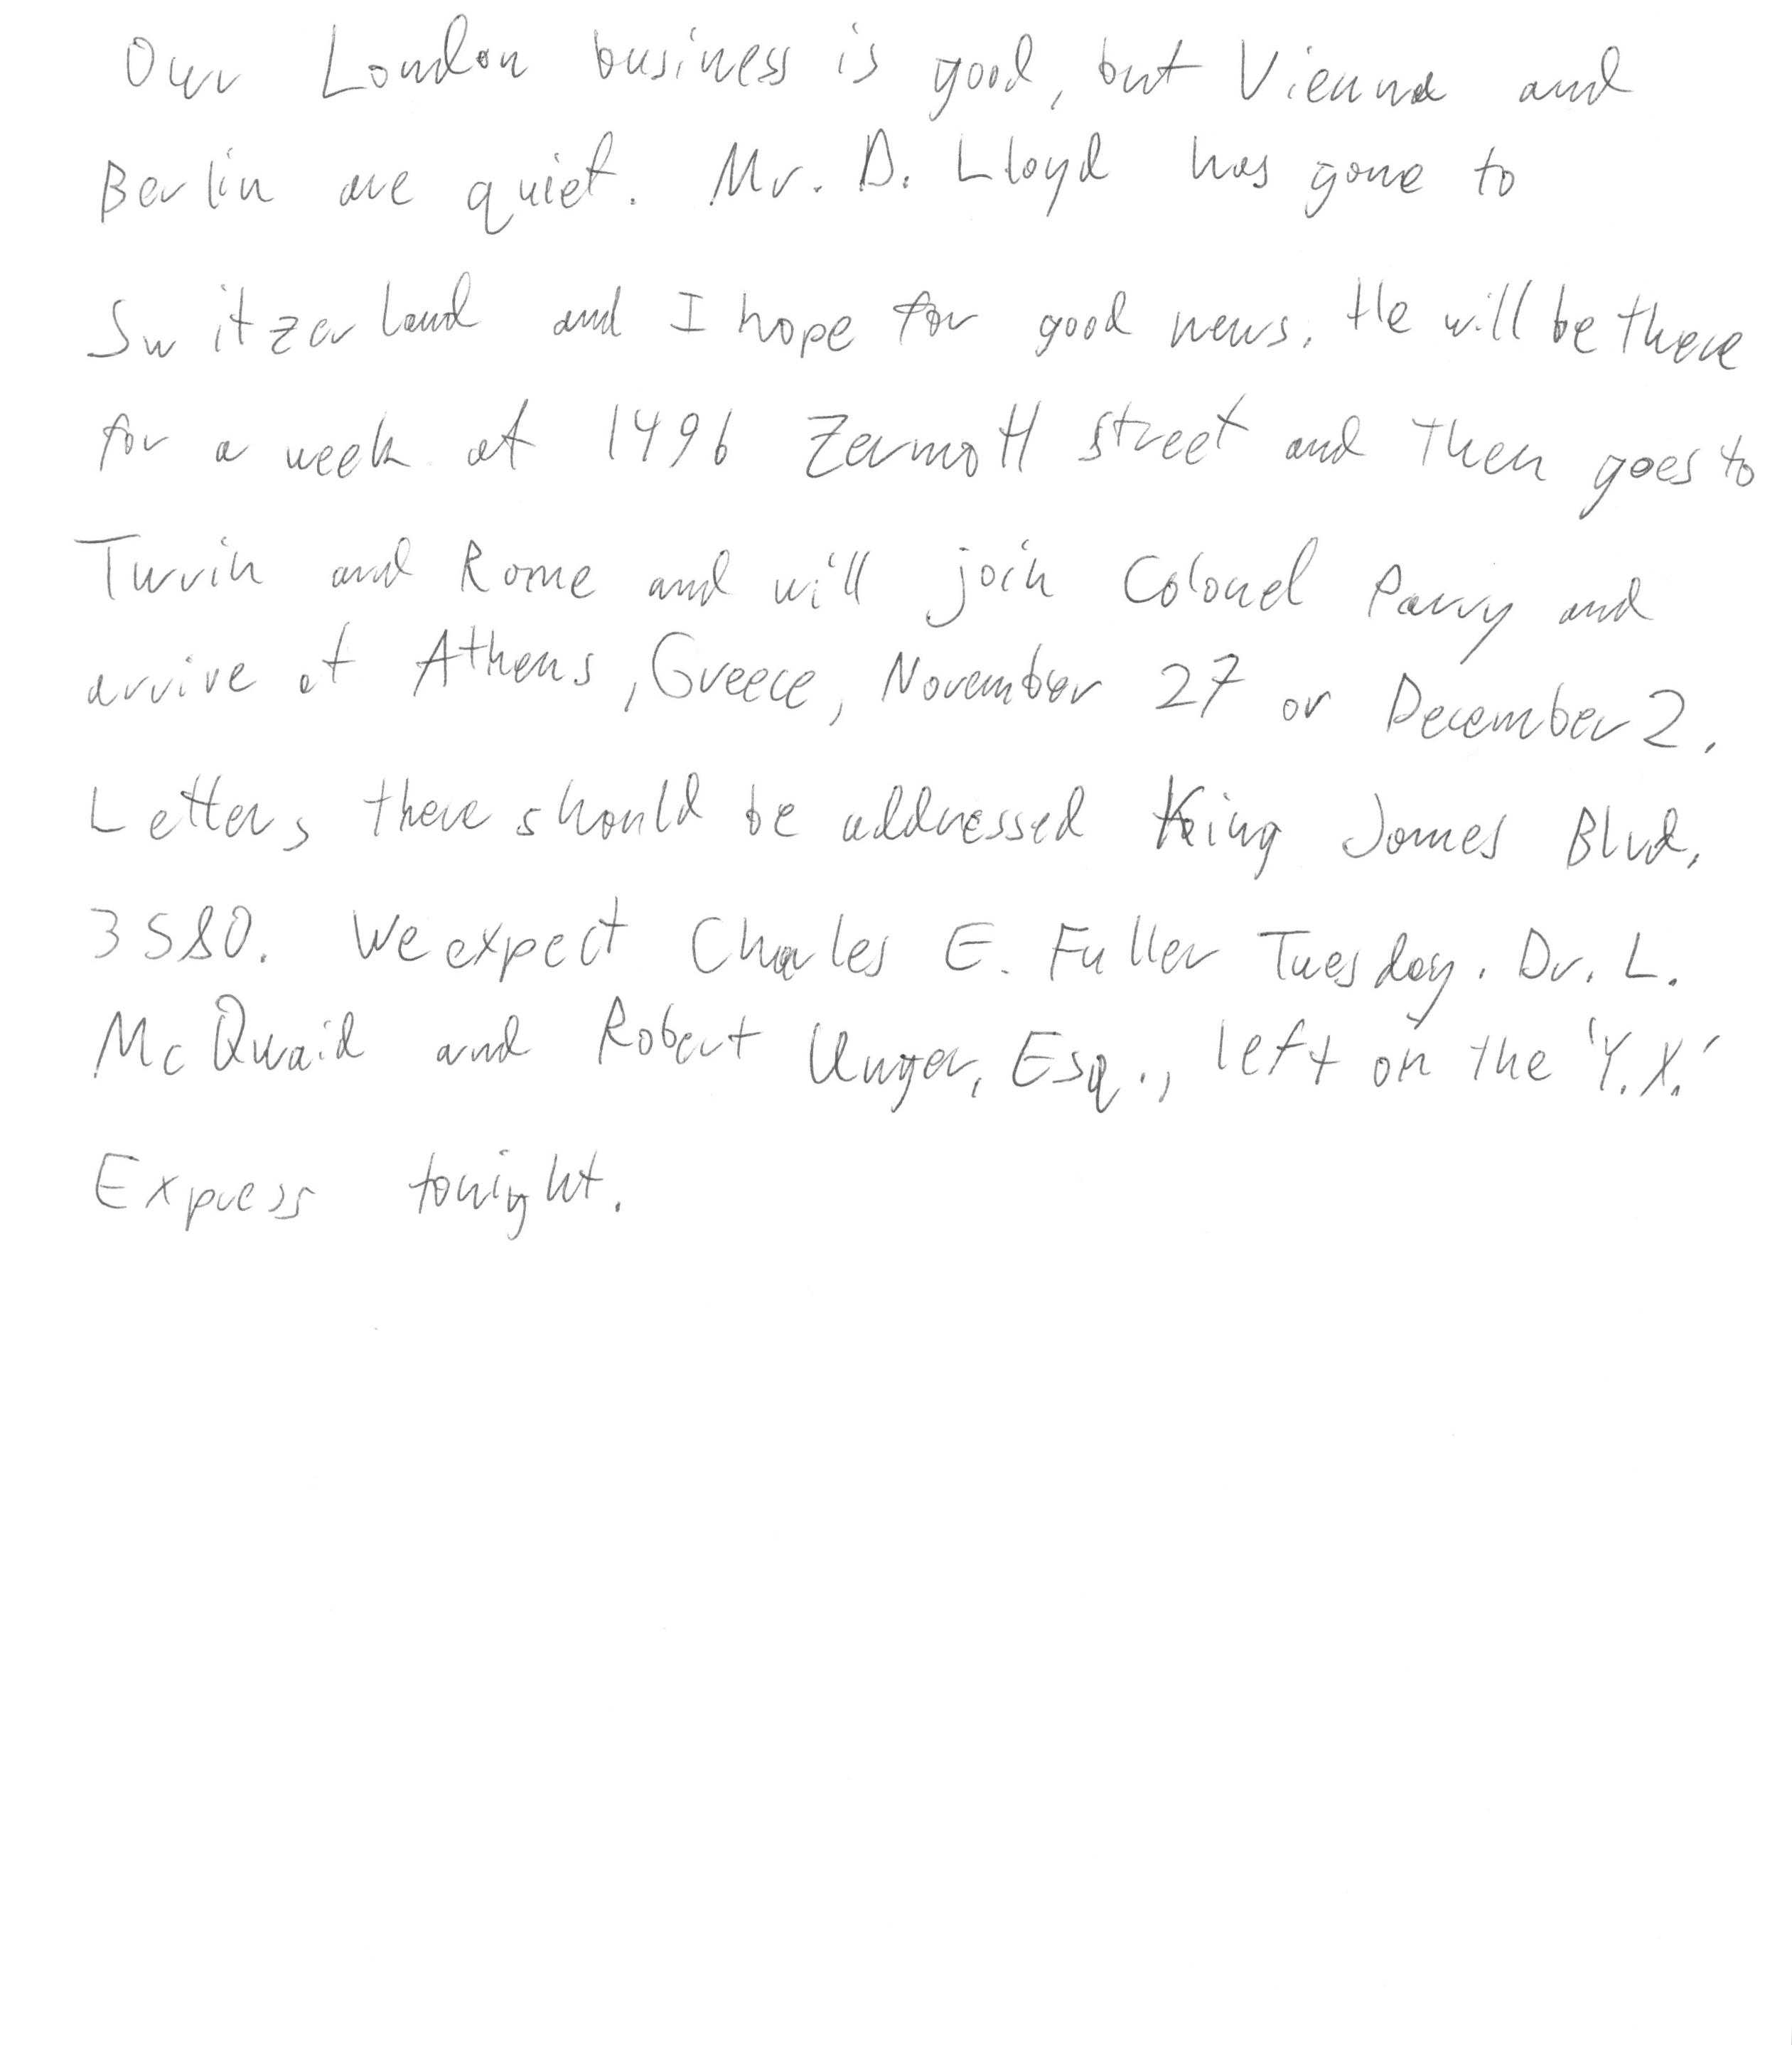 Our London business is good, but Vienna and
Berlin are quiet. Mr. D. Lloyd has gone to
Switzerland and I hope for good news. He will be there
for a week at 1496 Zermott street and then goes to
Turin and Rome and will join Colonel Parry and
arrive at Athens, Greece, November 27 or December 2.
Letters there should be addressed King James Blvd.
3580. We expect Charles E. Fuller Tuesday. Dr. L.
McQuaid and Robert Unger, Esq., left on the 'Y.X.'
Express tonight.